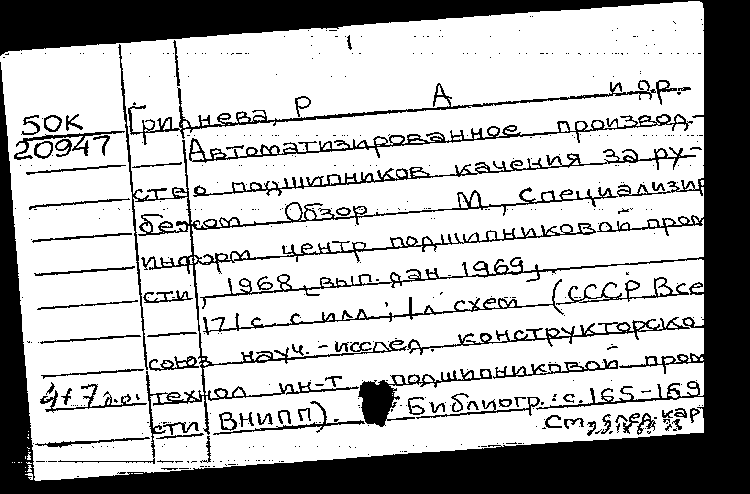 50К
20947
Гриднева, Р А и др.
Автоматизированное производ-
ство подшипников качения за ру-
бежом. Обзор. М., Специализир
информ центр подшипниковой пром
сти, 1968, [вып. дан. 1969].
171 с. с илл.; 1 л схем (СССР. Все
союз науч.-исслед. конструкторско
технол ин-т подшипниковой пром
сти ВНИПП). Библиогр.: с. 165-169
См. след. карт